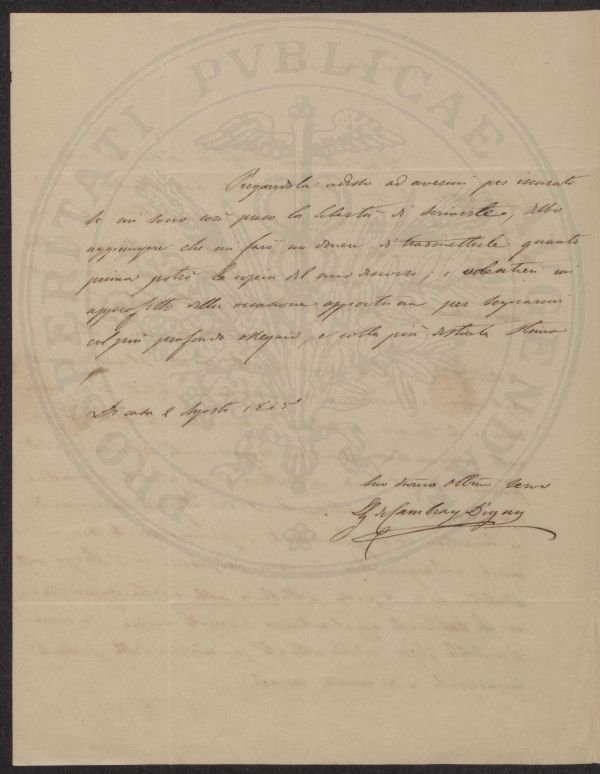 PROSPERITATI PVBLICAE AVGENDAE
Pregandola adesso ad avermi per iscusato
se mi sono così preso la libertà di scriverle, debbo
aggiungere che mi farò un dovere di trasmetterle quanto
prima potrò la copia del mio discorso; e volentieri mi
approfitto della occasione opportuna per segnarmi
col più profondo ossequio, e colla più distinta stima
Di casa 2 Agosto 1845
Suo Devmo Obblmo Servo
de Cambray Digny